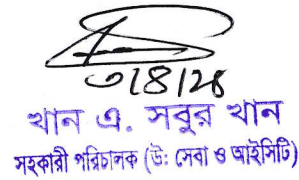 ৩/৪/২৪
খান এ. সবুর খান
সহকারী পরিচালক (উ: সেবা ও আইসিটি)